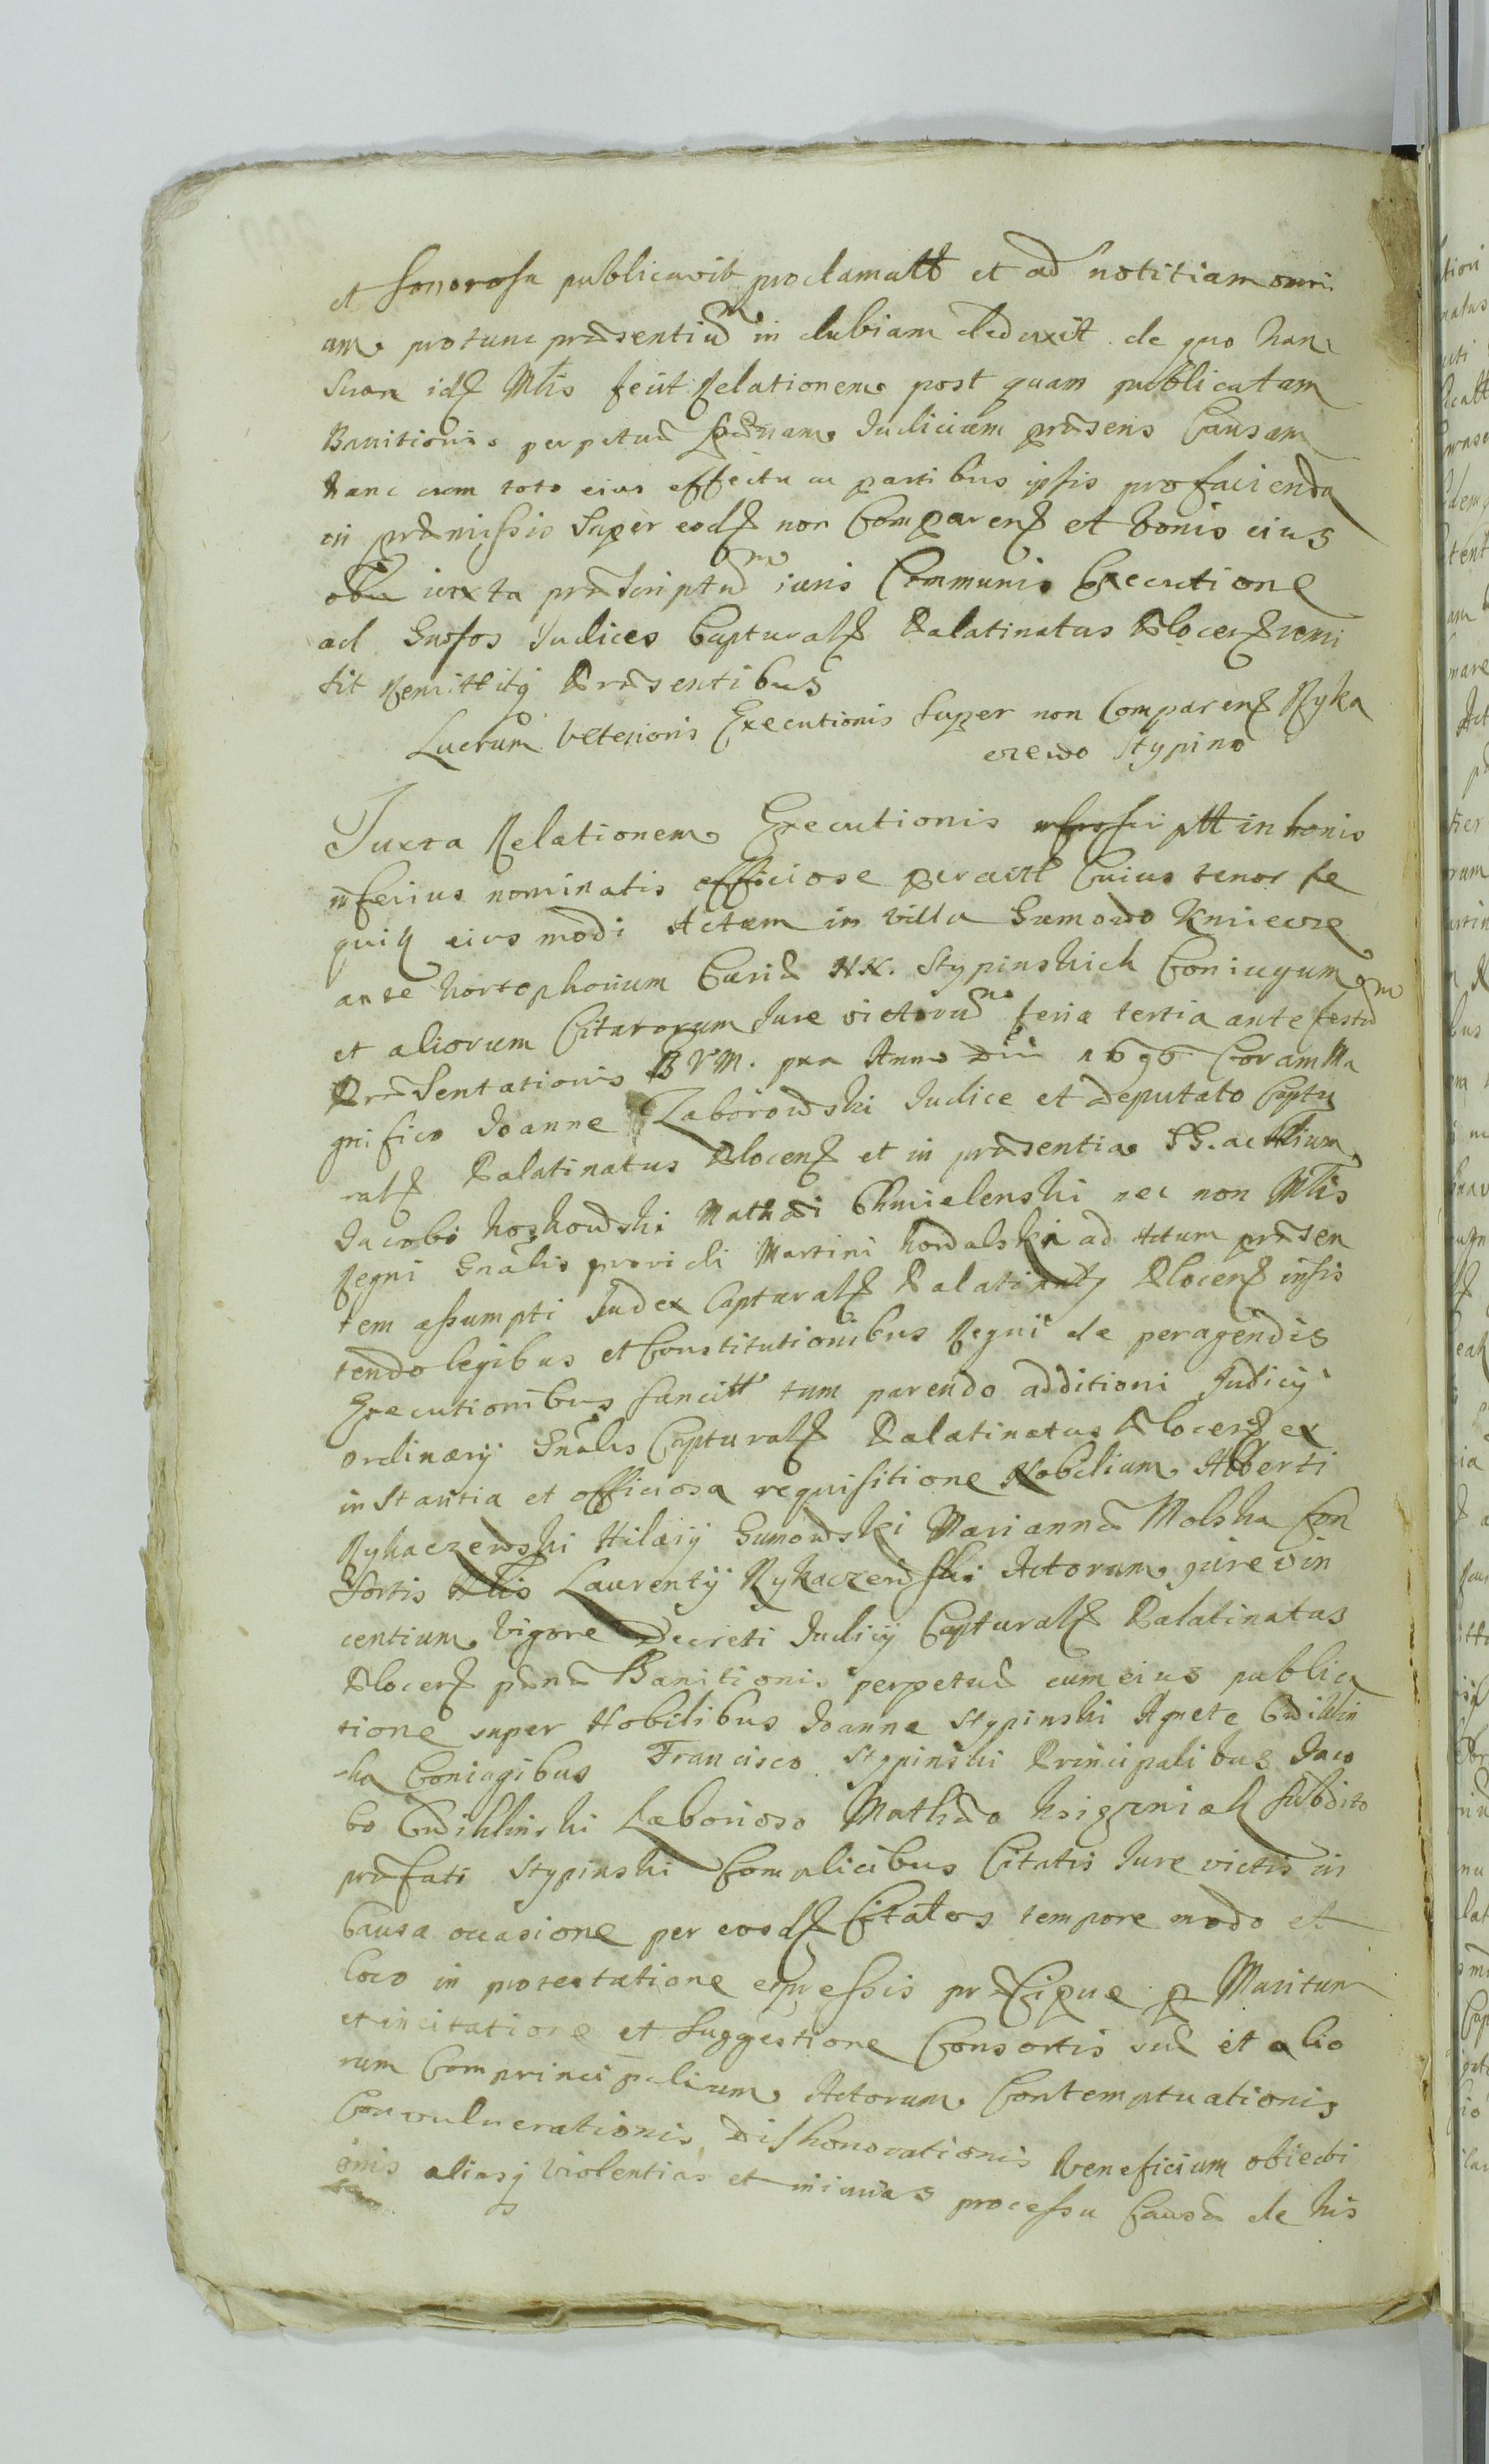 et sonorosa publicavit proclamatt et ad notitiam omni
um protunc præsentiu in dubiam deduxit de quo hanc
suam idq Mtis fecit Relationem post quam publicatam
Banitionis perpetuæ pænam Iudicium præsens Causam
hanc cum toto eius effectu ac partibus ipsis pro facienda
in præmissis super eodq non Comparenq et bonis eius
iuxta præscriptu iuris Communis Executione
ad Gnosos Iudices Capturalq Palatinatus Plocenq remi
sit Remittitq Præsentibus
Lucrum Veterioris Executionis super non Comparenq Ryka
czewo Stypino
Iuxta Relationem Executionis ptt in bonis
inferius nominatis officiose peractt Cuius tenor se
quitq eius modi Actum in villa Gumowo Kniewze
ante hortophorium Curiæ N.N. Stypinskich Coniugum
et aliorum Citatorum Iure victoru feria tertia ante festu
Præsentationis B V M. pxa Anno Dni 1696 Coram Ma
gnifico Ioanne Zaborowski Iudice et Deputato Captu
ralq Palatinatus Plocenq et in præsentia GG. ac Nlium
Iacobi Koskowski Mathæi Chmielenski nec non Mtis
Regni Gnalis providi Martini Kowalski ad Actum præsen
tem assumpti Iudex Capturalq Palatinatq Plocenq insis
tendo legibus et Constitutionibus Regni de peragendis
Executionibus sancitt tum parendo additioni Iudicij
ordinarij Gnalis Capturalq Palatinatus Plocenq ex
instantia et officiosa requisitione Nobilium Alberti
Rykaczewski Hilarij Gumowski Mariannæ Molska Con
sortis Nlis Laurentij Rykaczewski Actorum iure vin
centium vigore Decreti Iudicij Capturalq Palatinatus
Plocenq pænæ Banitionis perpetuæ cum eius publica
tione super Nobilibus Ioanne Stypinski Agnete Cwiklin
ska Coniugibus Francisco Stypinski Principalibus Iaco
bo Cwiklinski Laborioso Mathæo Ksigzniak subdito
præfati Stypinski Complicibus Citatis Iure victis in
Causa occasione per eosdq Citatos tempore modo et
loco in protestatione expressis præcipue p Maritum
et incitatione et suggestione Consortis suæ et alio
rum Comprincipalium Actorum Contemptuationis
Convulnerationis Dishonorationis Veneficium obiecti
onis aliasq violentias et iniurias processu Causæ de his